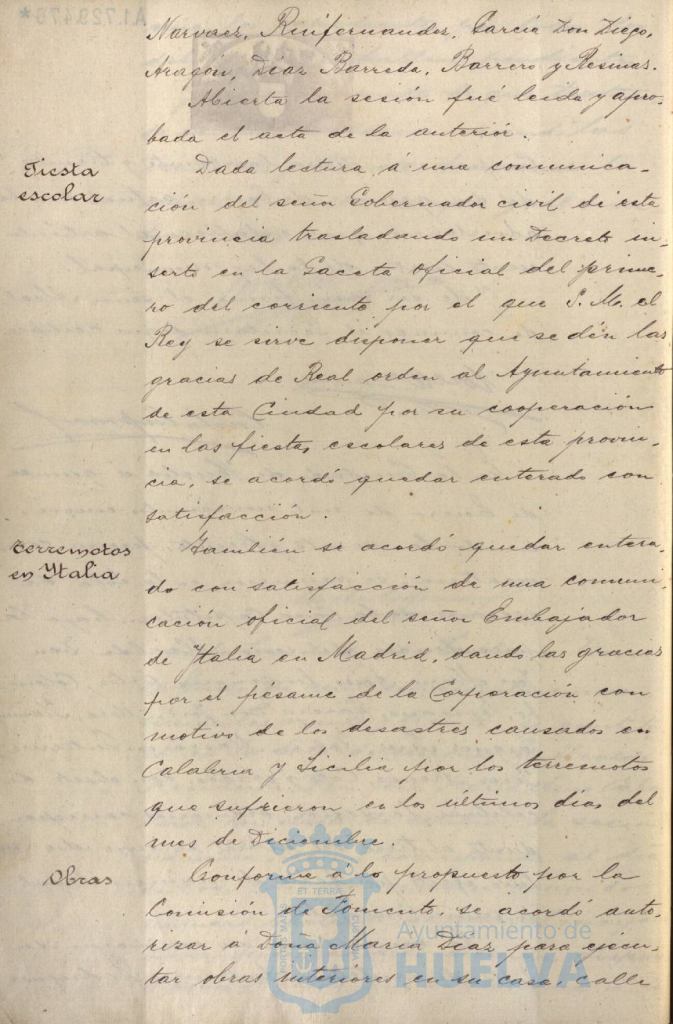 A1.729.479*
Narvaez, Rinifernandez, García Don Diego,
Aragón, Díaz Barreda, Barrero y Resinas.
Abierta la sesión fué leida y apro-
bada el acta de la anterior.
Fiesta
escolar
Dada lectura á una comunica-
ción del señor Gobernador civil de esta
provincia trasladando un Decreto in-
serto en la Gaceta oficial del prime-
ro del corriente por el que S. M. el
Rey se sirve disponer que se dén las
gracias de Real orden al Ayuntamiento
de esta Ciudad por su cooperación
en las fiestas escolares de esta provin-
cia, se acordó quedar enterado con
satisfacción.
Terremotos
en Italia
También se acordó quedar entera-
do con satisfacción de una comuni-
cación oficial del señor Embajador
de Italia en Madrid, dando las gracias
por el pésame de la Corporación con
motivo de los desastres causados en
Calabria y Sicilia por los terremotos
que sufrieron en los últimos días del
mes de Diciembre.
Obras
Conforme á lo propuesto por la
Comisión de Fomento, se acordó auto-
rizar á Doña María Díaz para ejecu-
tar obras interiores en su casa, calle
Ayuntamiento de
HUELVA